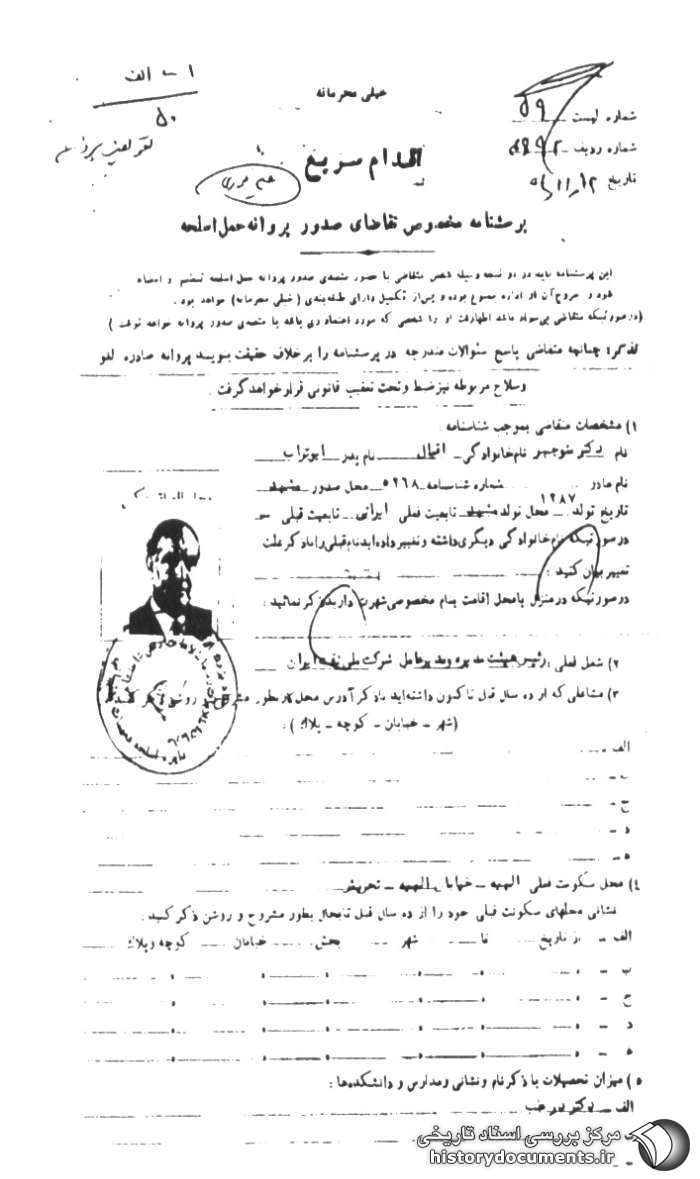 خیلی محرمانه
۱ - الف
۵۰
شماره لیست ۵۹
شماره ردیف
تاریخ
اقدام سریع
خیلی فوری
پرسشنامه مخصوص تقاضای صدور پروانه حمل اسلحه
این پرسشنامه باید در دو نسخه وسیله شخص متقاضی با حضور متصدی صدور پروانه حمل اسلحه تنظیم و امضاء
شود و خروج آن از اداره ممنوع بوده و پس از تکمیل دارای طبقه‌بندی (خیلی محرمانه) خواهد بود.
(در صورتیکه متقاضی بی‌سواد باشد اظهارات او را شخصی که مورد اعتماد وی باشد یا متصدی صدور پروانه خواهد نوشت)
تذکر: چنانچه متقاضی پاسخ سئوالات مندرجه در پرسشنامه را برخلاف حقیقت بنویسد پروانه صادره لغو
وسلاح مربوطه نیز ضبط وتحت تعقیب قانونی قرار خواهد گرفت.
۱) مشخصات متقاضی بموجب شناسنامه:
نام دکتر منوچهر نام خانوادگی اقبال نام پدر ابوتراب
نام مادر شماره شناسنامه ۵۲۶۸ محل صدور مشهد
تاریخ تولد ۱۲۸۷ محل تولد مشهد تابعیت فعلی ایرانی تابعیت قبلی
در صورتیکه نام خانوادگی دیگری داشته و تغییر داده‌اید نام قبلی را با ذکر علت
تغییر بیان کنید:
در صورتیکه در منزل یا محل اقامت بنام مخصوصی شهرت دارید ذکر نمائید:
۲) شغل فعلی: رئیس هیئت مدیره ومدیرعامل شرکت ملی نفت ایران
۳) مشاغلی که از ده سال قبل تاکنون داشته‌اید با ذکر آدرس محل کار بطور مشروح و روشن ذکر کنید
(شهر - خیابان - کوچه - پلاک):
الف -
ب -
ج -
د -
ه -
۴) محل سکونت فعلی الهیه - خیابان الهیه - تجریش
نشانی محلهای سکونت قبلی خود را از ده سال قبل تابحال بطور مشروح و روشن ذکر کنید:
الف - از تاریخ تا شهر بخش خیابان کوچه وپلاک
ب -
ج -
د -
ه -
۵) میزان تحصیلات با ذکر نام ونشانی ومدارس و دانشکده‌ها:
الف - دکتر در طب
ب -
مرکز بررسی اسناد تاریخی
historydocuments.ir